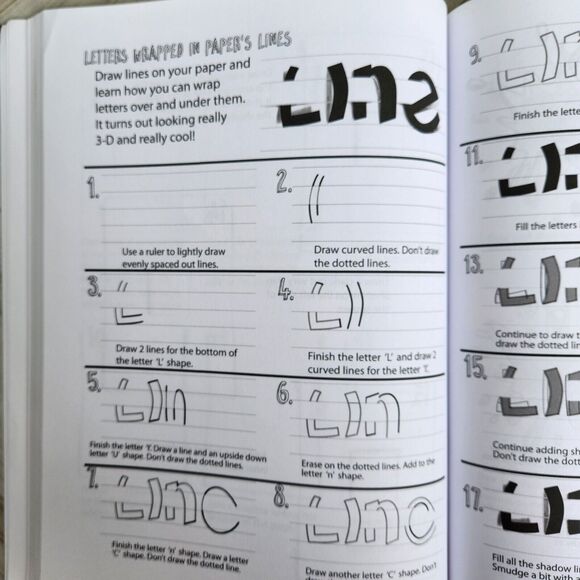 LETTERS WRAPPED IN PAPER'S LINES
Draw lines on your paper and
learn how you can wrap
letters over and under them.
It turns out looking really
3-D and really cool!
Lines
1.
Use a ruler to lightly draw
evenly spaced out lines.
2.
Draw curved lines. Don't draw
the dotted lines.
3.
Draw 2 lines for the bottom of
the letter 'L' shape.
4.
Finish the letter 'L' and draw 2
curved lines for the letter 'I'.
5.
Finish the letter 'I'. Draw a line and an upside down
letter 'U' shape. Don't draw the dotted lines.
6.
Erase on the dotted lines. Add to the
letter 'n' shape.
7.
Finish the letter 'n' shape. Draw a letter
'C' shape. Don't draw the dotted line.
8.
Draw another letter 'C' shape. Don't
9.
Finish the
11.
Fill the letters
13.
Continue to draw
draw the dotted
15.
Continue adding
Don't draw the
17.
Fill all the shadow
Smudge a bit